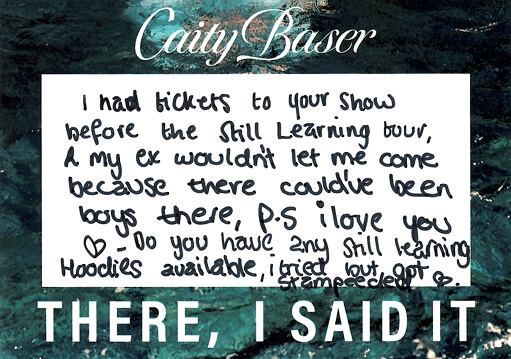 Caity Baser
I had tickets to your show
before the Still Learning tour,
& my ex wouldn't let me come
because there could've been
boys there, P.S i love you
♡ - Do you have any Still learning
Hoodies available, i tried but got
stampeeded! ♡.
THERE, I SAID IT